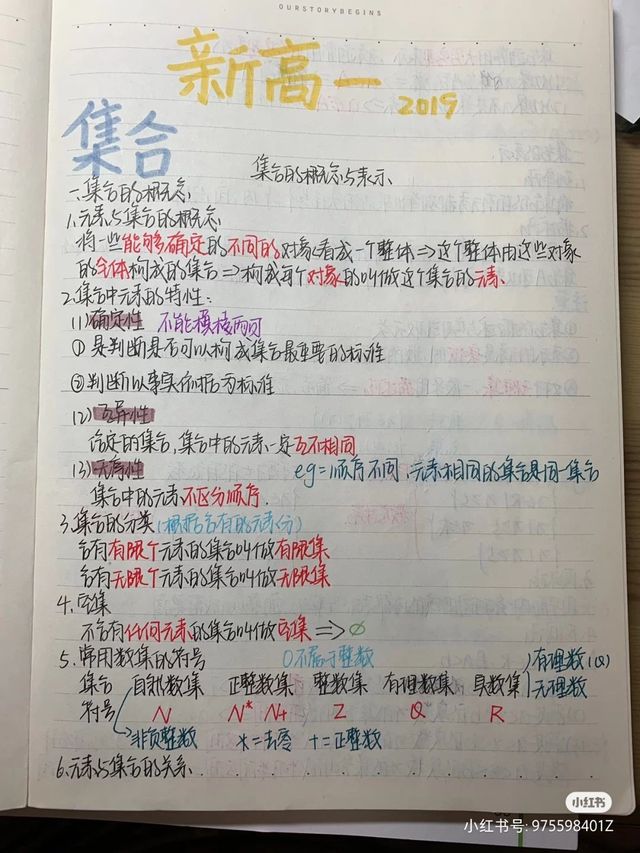 OURSTORYBEGINS
新高一 2019
集合
集合的概念与表示
一.集合的概念
1.元素与集合的概念
将一些能够确定的不同的对象看成一个整体⇒这个整体由这些对象
的全体构成的集合⇒构成每个对象的叫做这个集合的元素.
2.集合中元素的特性:
(1)确定性 不能模棱两可
①是判断是否可以构成集合最重要的标准
②判断以事实依据为标准
(2)互异性
给定的集合,集合中的元素一定互不相同
(3)无序性 eg=顺序不同,元素相同的集合是同一集合
集合中的元素不区分顺序.
3.集合的分类(根据含有的元素分)
含有有限个元素的集合叫做有限集
含有无限个元素的集合叫做无限集
4.空集
不含有任何元素的集合叫做空集⇒∅
5.常用数集的符号 0不属于整数 有理数(Q)
集合 自然数集 正整数集 整数集 有理数集 实数集 无理数
符号 N N* N+ Z Q R
非负整数 *=去零 +=正整数
6.元素与集合的关系.
小红书
小红书号: 975598401Z